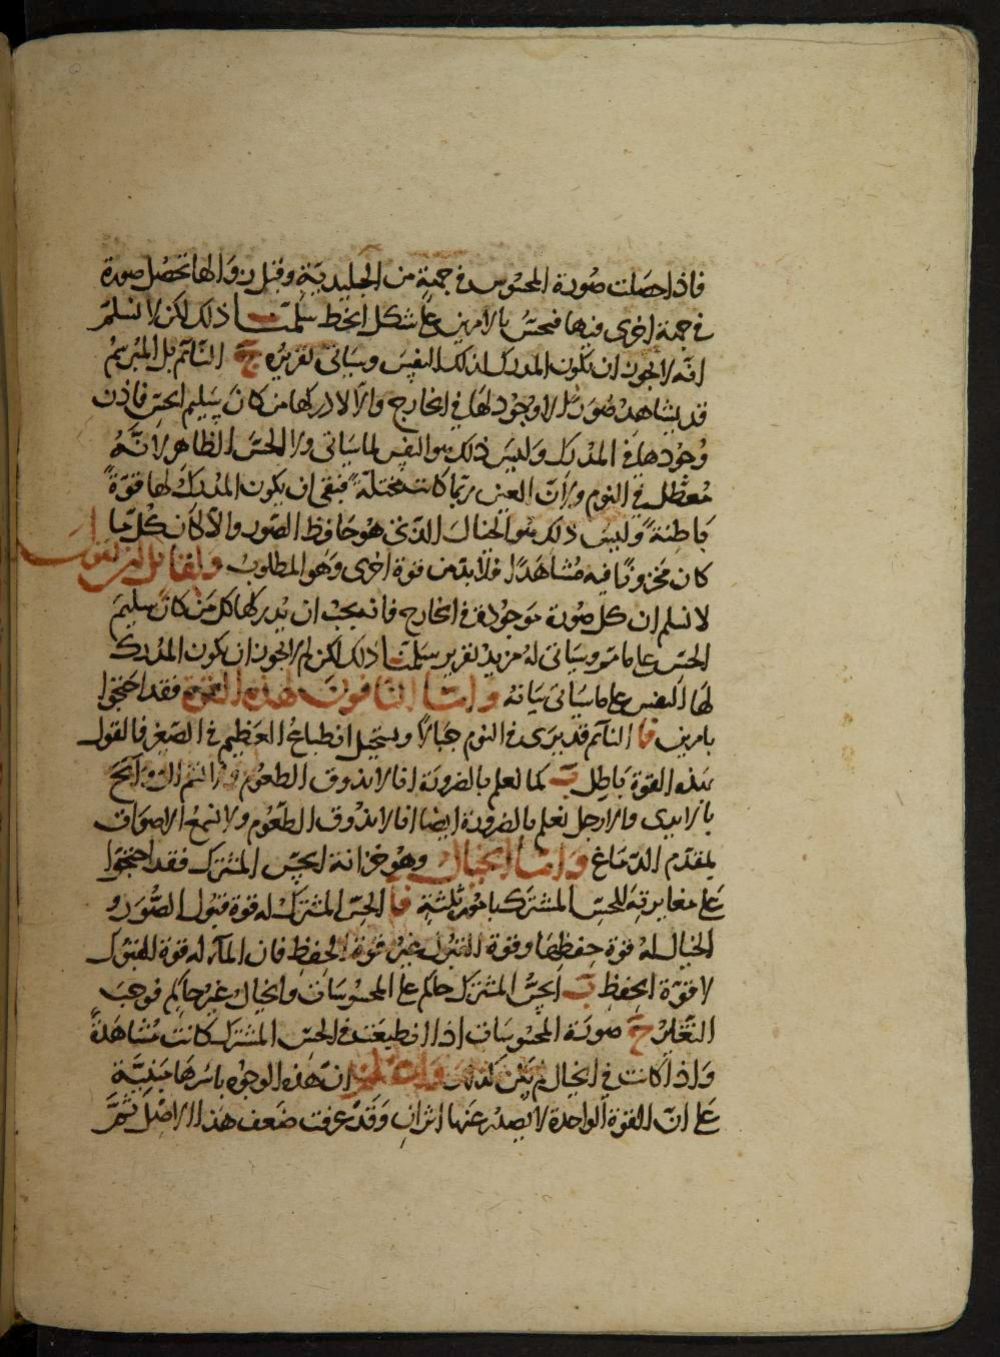 فاذا حصلت صورة المحسوس في جهة من الجليدية وقبل زوالها تحصل صورة
في جهة اخرى فيها فيحس بالامرين على شكل الخط سلمنا ذلك لكن لا نسلم
انه لا يجوز ان يكون المدرك لذلك النفس وسياتى تقريره ج النائم بل المبرسم
قد يشاهد صورا لا وجود لها في الخارج والا لادركها من كان سليم الحس فاذن
وجودها في المدرك وليس ذلك هو النفس لما سياتى ولا الحس الظاهر لانه
معطل في النوم ولان العين ربما كانت مختلة فبقى ان يكون المدرك لها قوة
باطنة وليس ذلك هو الخيال الذى هو حافظ الصور والا لكان كل ما
كان مخزونا فيه مشاهدا فلا بد من قوة اخرى وهو المطلوب ولقائل ان يقول
لا نسلم ان كل صورة موجودة في الخارج فانه يجب ان يدركها كل من كان سليم
الحس على ما مر وسياتى له مزيد تقرير سلمنا ذلك لكن لم لا يجوز ان يكون المدرك
لها النفس على ما سياتى بيانه واما النافون لهذه القوة فقد احتجوا
بامرين فا النائم قد يرى في النوم جبالا ويستحيل انطباع العظيم في الصغير فالقول
بهذه القوة باطل ب كما نعلم بالضرورة انا لا نذوق الطعوم ولا نشم الروايح
بالايدى والارجل نعلم بالضرورة ايضا انا لا نذوق الطعوم ولا نسمع الاصوات
بمقدم الدماغ واما الخيال وهو خزانة الحس المشترك فقد احتجوا
على مغايرته للحس المشترك بامور ثلثة فا الحس المشترك له قوة قبول الصور و
الخيال له قوة حفظها وقوة القبول غير قوة الحفظ فان الماء له قوة القبول
لا قوة الحفظ ب الحس المشترك حاكم على المحسوسات والخيال غير حاكم فوجب
التغاير ج صورة المحسوسات اذا انطبعت في الحس المشترك كانت مشاهدة
واذا كانت في الخيال لم يكن كذلك واعلم ان هذه الوجوه باسرها مبنية
على ان القوة الواحدة لا يصدر عنها اثران وقد عرفت ضعف هذا الاصل ثم